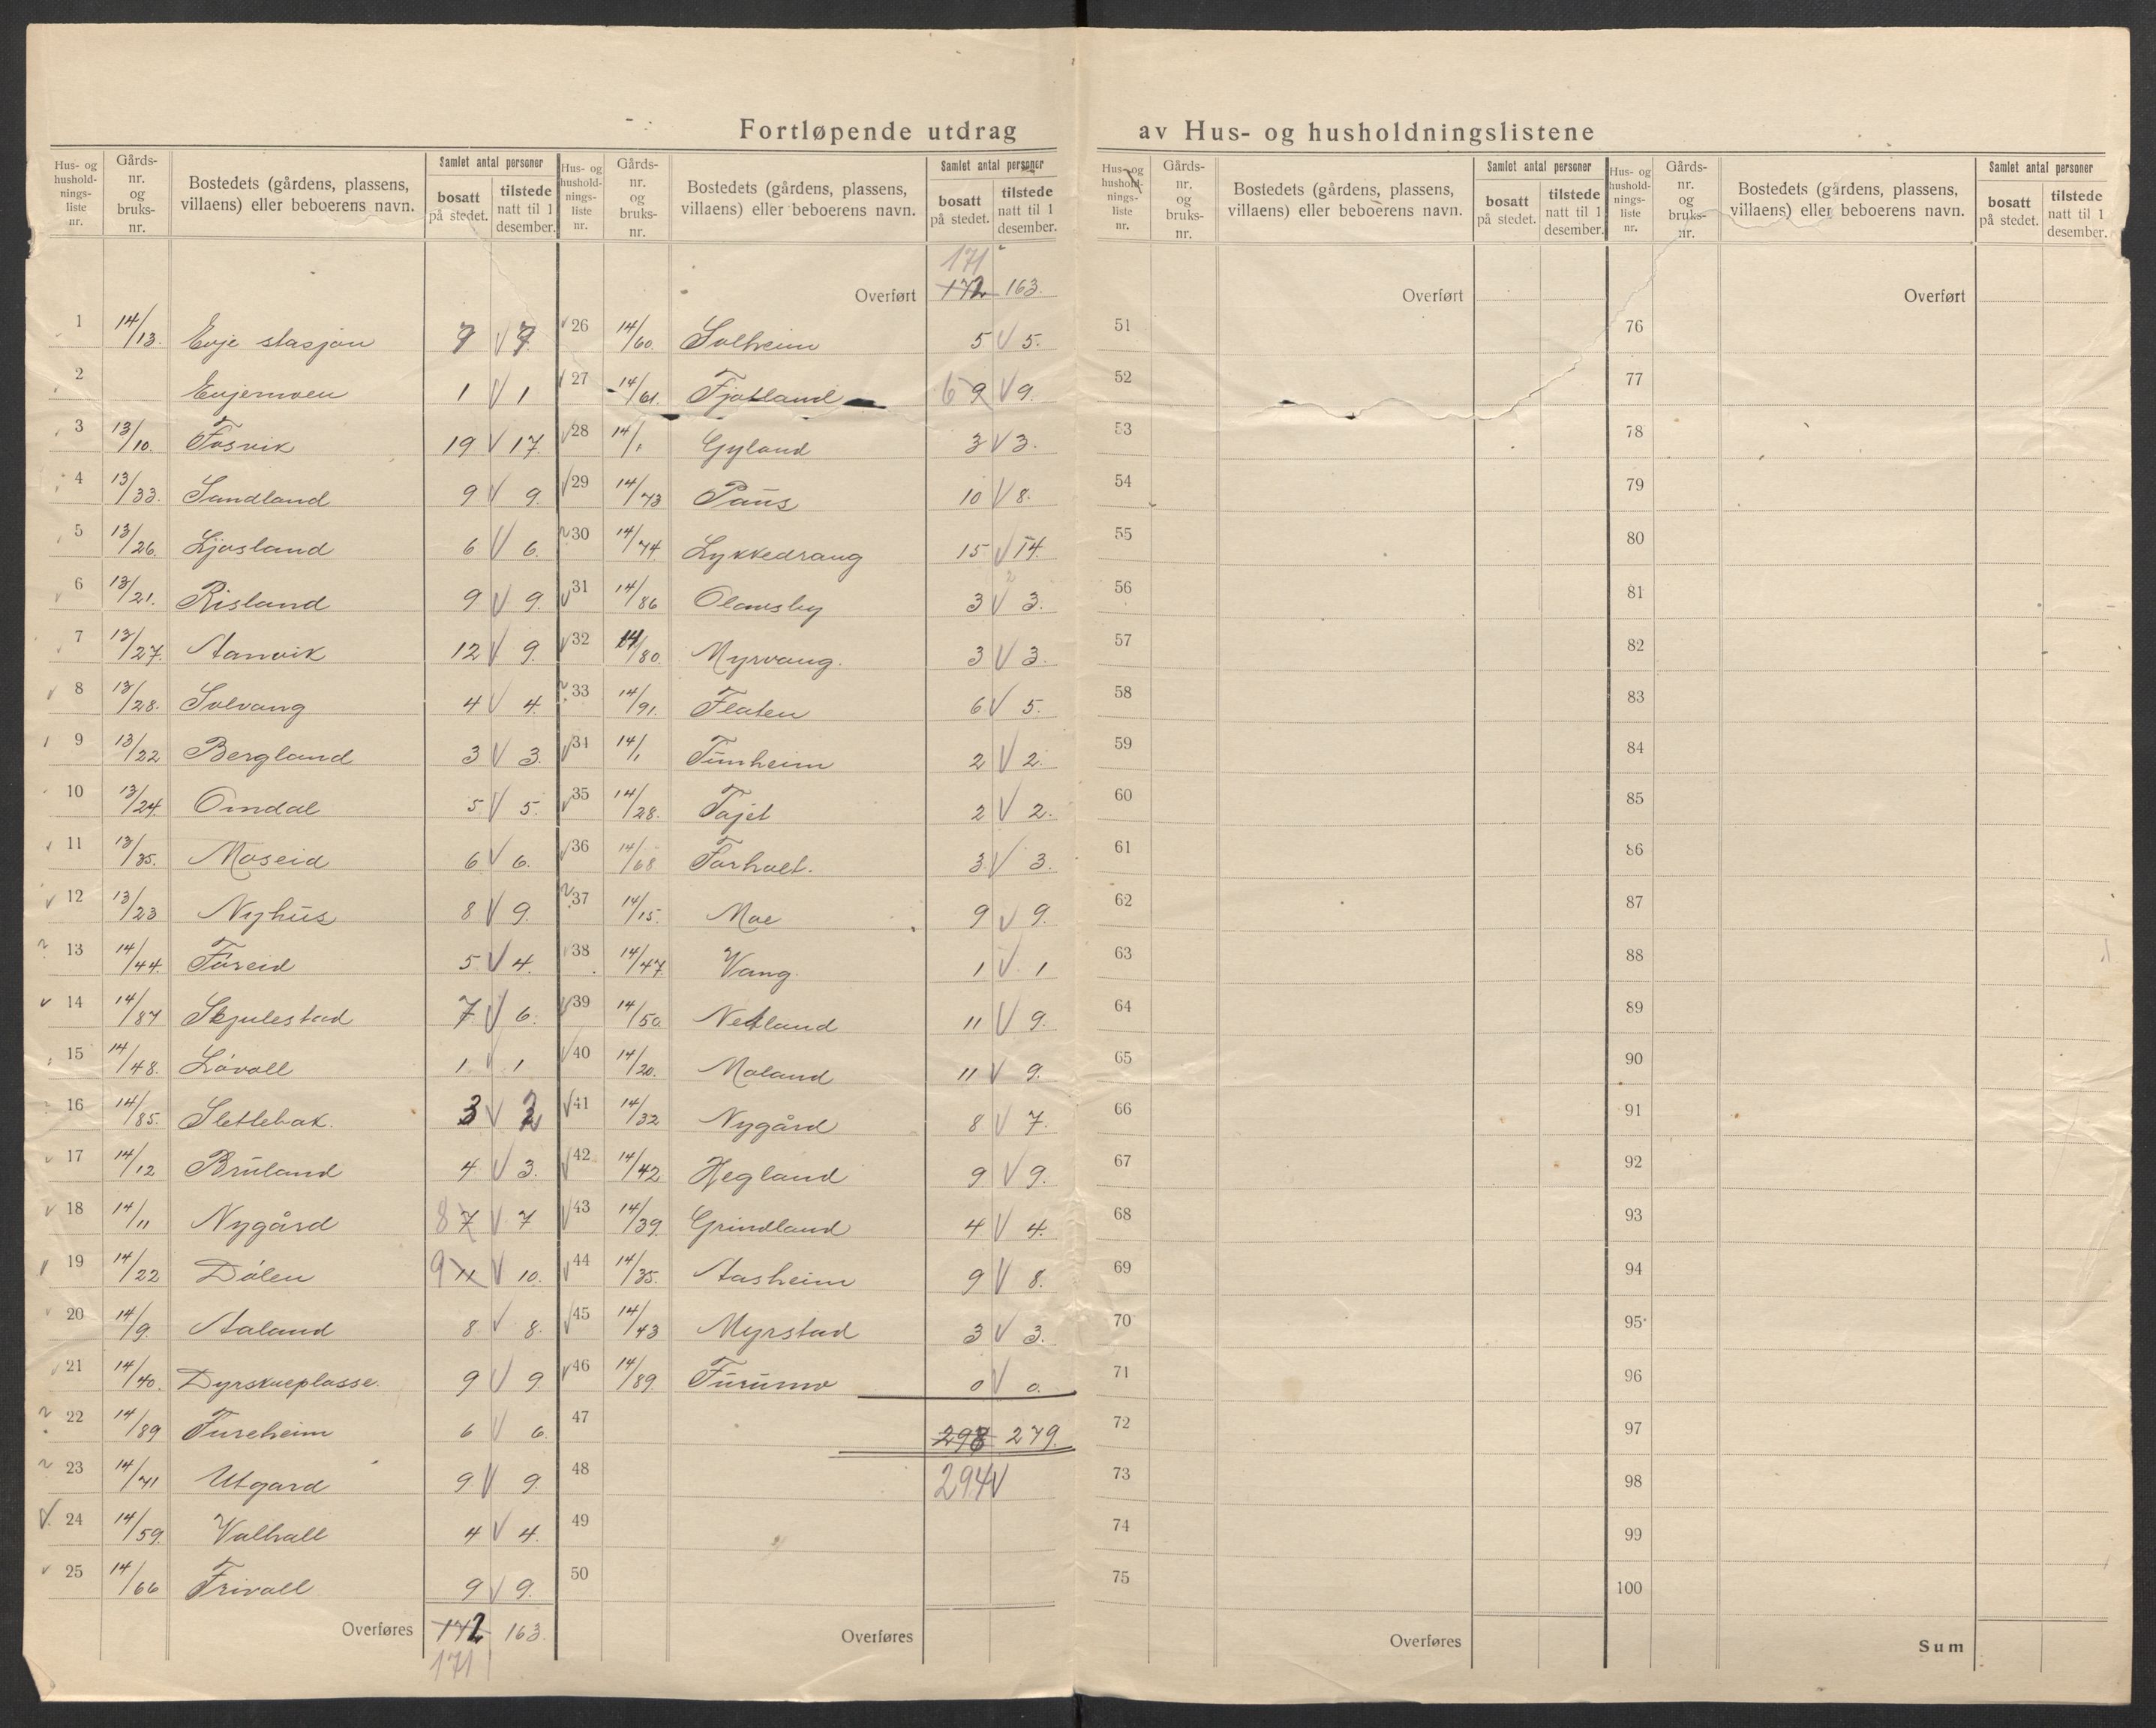 Fortløpende utdrag av Hus- og husholdningslistene
Hus- og husholdningsliste nr. | Gårds-nr. og bruks-nr. | Bostedets (gårdens, plassens, villaens) eller beboerens navn. | Samlet antal personer | bosatt på stedet. | tilstede natt til 1 desember.
1 14/13. Evje stasjon 7 V 7
2 Evjemoen 1 V 1
3 13/10. Fosvik 19 V 17.
4 13/33. Sandland 9 V 9.
5 13/26. Ljosland 6 V 6.
6 13/21. Risland 9 V 9.
7 13/27. Aamvik 12 V 9.
8 13/28. Solvang 4 V 4.
9 13/22 Bergland 3 V 3.
10 13/24. Omdal 5 V 5.
11 13/35. Moseid 6 V 6.
12 13/23 Nyhus 8 V 9.
13 14/44. Föreid 5 V 4.
14 14/87 Skjulestad 7 V 6.
15 14/48. Lövoll 1 V 1
16 14/85. Slettebak. 3 V 2
17 14/12 Bruland 4 V 3.
18 14/11 Nygård 8 7 V 7
19 14/22 Dölen 9 11 V 10.
20 14/9. Aaland 8 V 8.
21 14/40. Dyrskueplasse. 9 V 9.
22 14/89 Fureheim 6 V 6.
23 14/71 Utgard 9 V 9.
24 14/59. Valhall 4 V 4.
25 14/66 Frivoll 9 V 9.
Overføres 172 163.
171
Hus- og husholdningsliste nr. | Gårds-nr. og bruks-nr. | Bostedets (gårdens, plassens, villaens) eller beboerens navn. | Samlet antal personer | bosatt på stedet. | tilstede natt til 1 desember.
171
Overført 172 163.
26 14/60. Solheim 5 V 5.
27 14/61. Fjotland 6 9 V 9.
28 14/1 Gyland 3 V 3.
29 14/73 Paus 10 V 8.
30 14/74. Lykkedrang 15 V 14.
31 14/86 Olavsby 3 V 3.
32 14/80. Myrvang. 3 V 3.
33 14/91. Flaten 6 V 5.
34 14/1 Tunheim 2 V 2.
35 14/28. Fajet 2 V 2.
36 14/68 Forholt. 3 V 3.
37 14/15. Moe 9 V 9.
38 14/47 Vang. 1 V 1
39 14/50. Netland 11 V 9.
40 14/20. Moland 11 V 9.
41 14/32 Nygård 8 V 7.
42 14/42 Hegland 9 V 9.
43 14/39. Grindland 4 V 4.
44 14/35. Aasheim 9 V 8.
45 14/43 Myrstad 3 V 3.
46 14/89. Furumo 0 V 0.
47 298 279
48 294 V
49
50
Overføres
Hus- og husholdningsliste nr. | Gårds-nr. og bruks-nr. | Bostedets (gårdens, plassens, villaens) eller beboerens navn. | Samlet antal personer | bosatt på stedet. | tilstede natt til 1 desember.
Overført
51
52
53
54
55
56
57
58
59
60
61
62
63
64
65
66
67
68
69
70
71
72
73
74
75
Overføres
Hus- og husholdningsliste nr. | Gårds-nr. og bruks-nr. | Bostedets (gårdens, plassens, villaens) eller beboerens navn. | Samlet antal personer | bosatt på stedet. | tilstede natt til 1 desember.
Overført
76
77
78
79
80
81
82
83
84
85
86
87
88
89
90
91
92
93
94
95
96
97
98
99
100
Sum